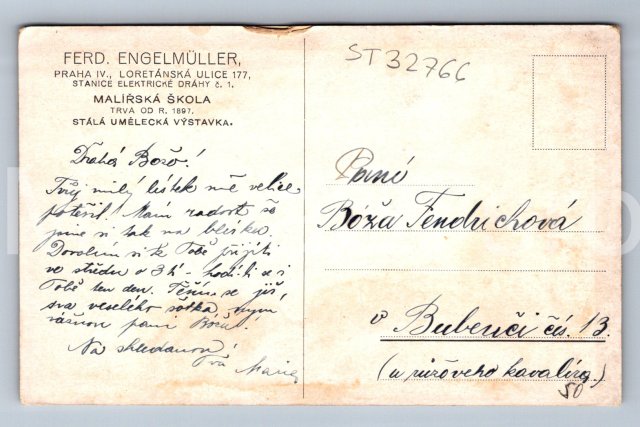 FERD. ENGELMÜLLER,
PRAHA IV., LORETÁNSKÁ ULICE 177,
STANICE ELEKTRICKÉ DRÁHY č. 1.
MALÍŘSKÁ ŠKOLA
TRVÁ OD R. 1897.
STÁLÁ UMĚLECKÁ VÝSTAVKA.
ST32766
Drahá Božo!
Tvůj milý lístek mě velice
potěšil. Mám radost že
jsme si tak na blízku.
Dovolím si k Tobě přijíti
ve středu o 3 h – hodí-li se i
Tobě ten den. Těším se již,
pani
Na shledanou!
Tvá Marie
Paní
Bóža Fendrichová
v Bubenči čís. 13.
(u růžového kavalíra.)
50